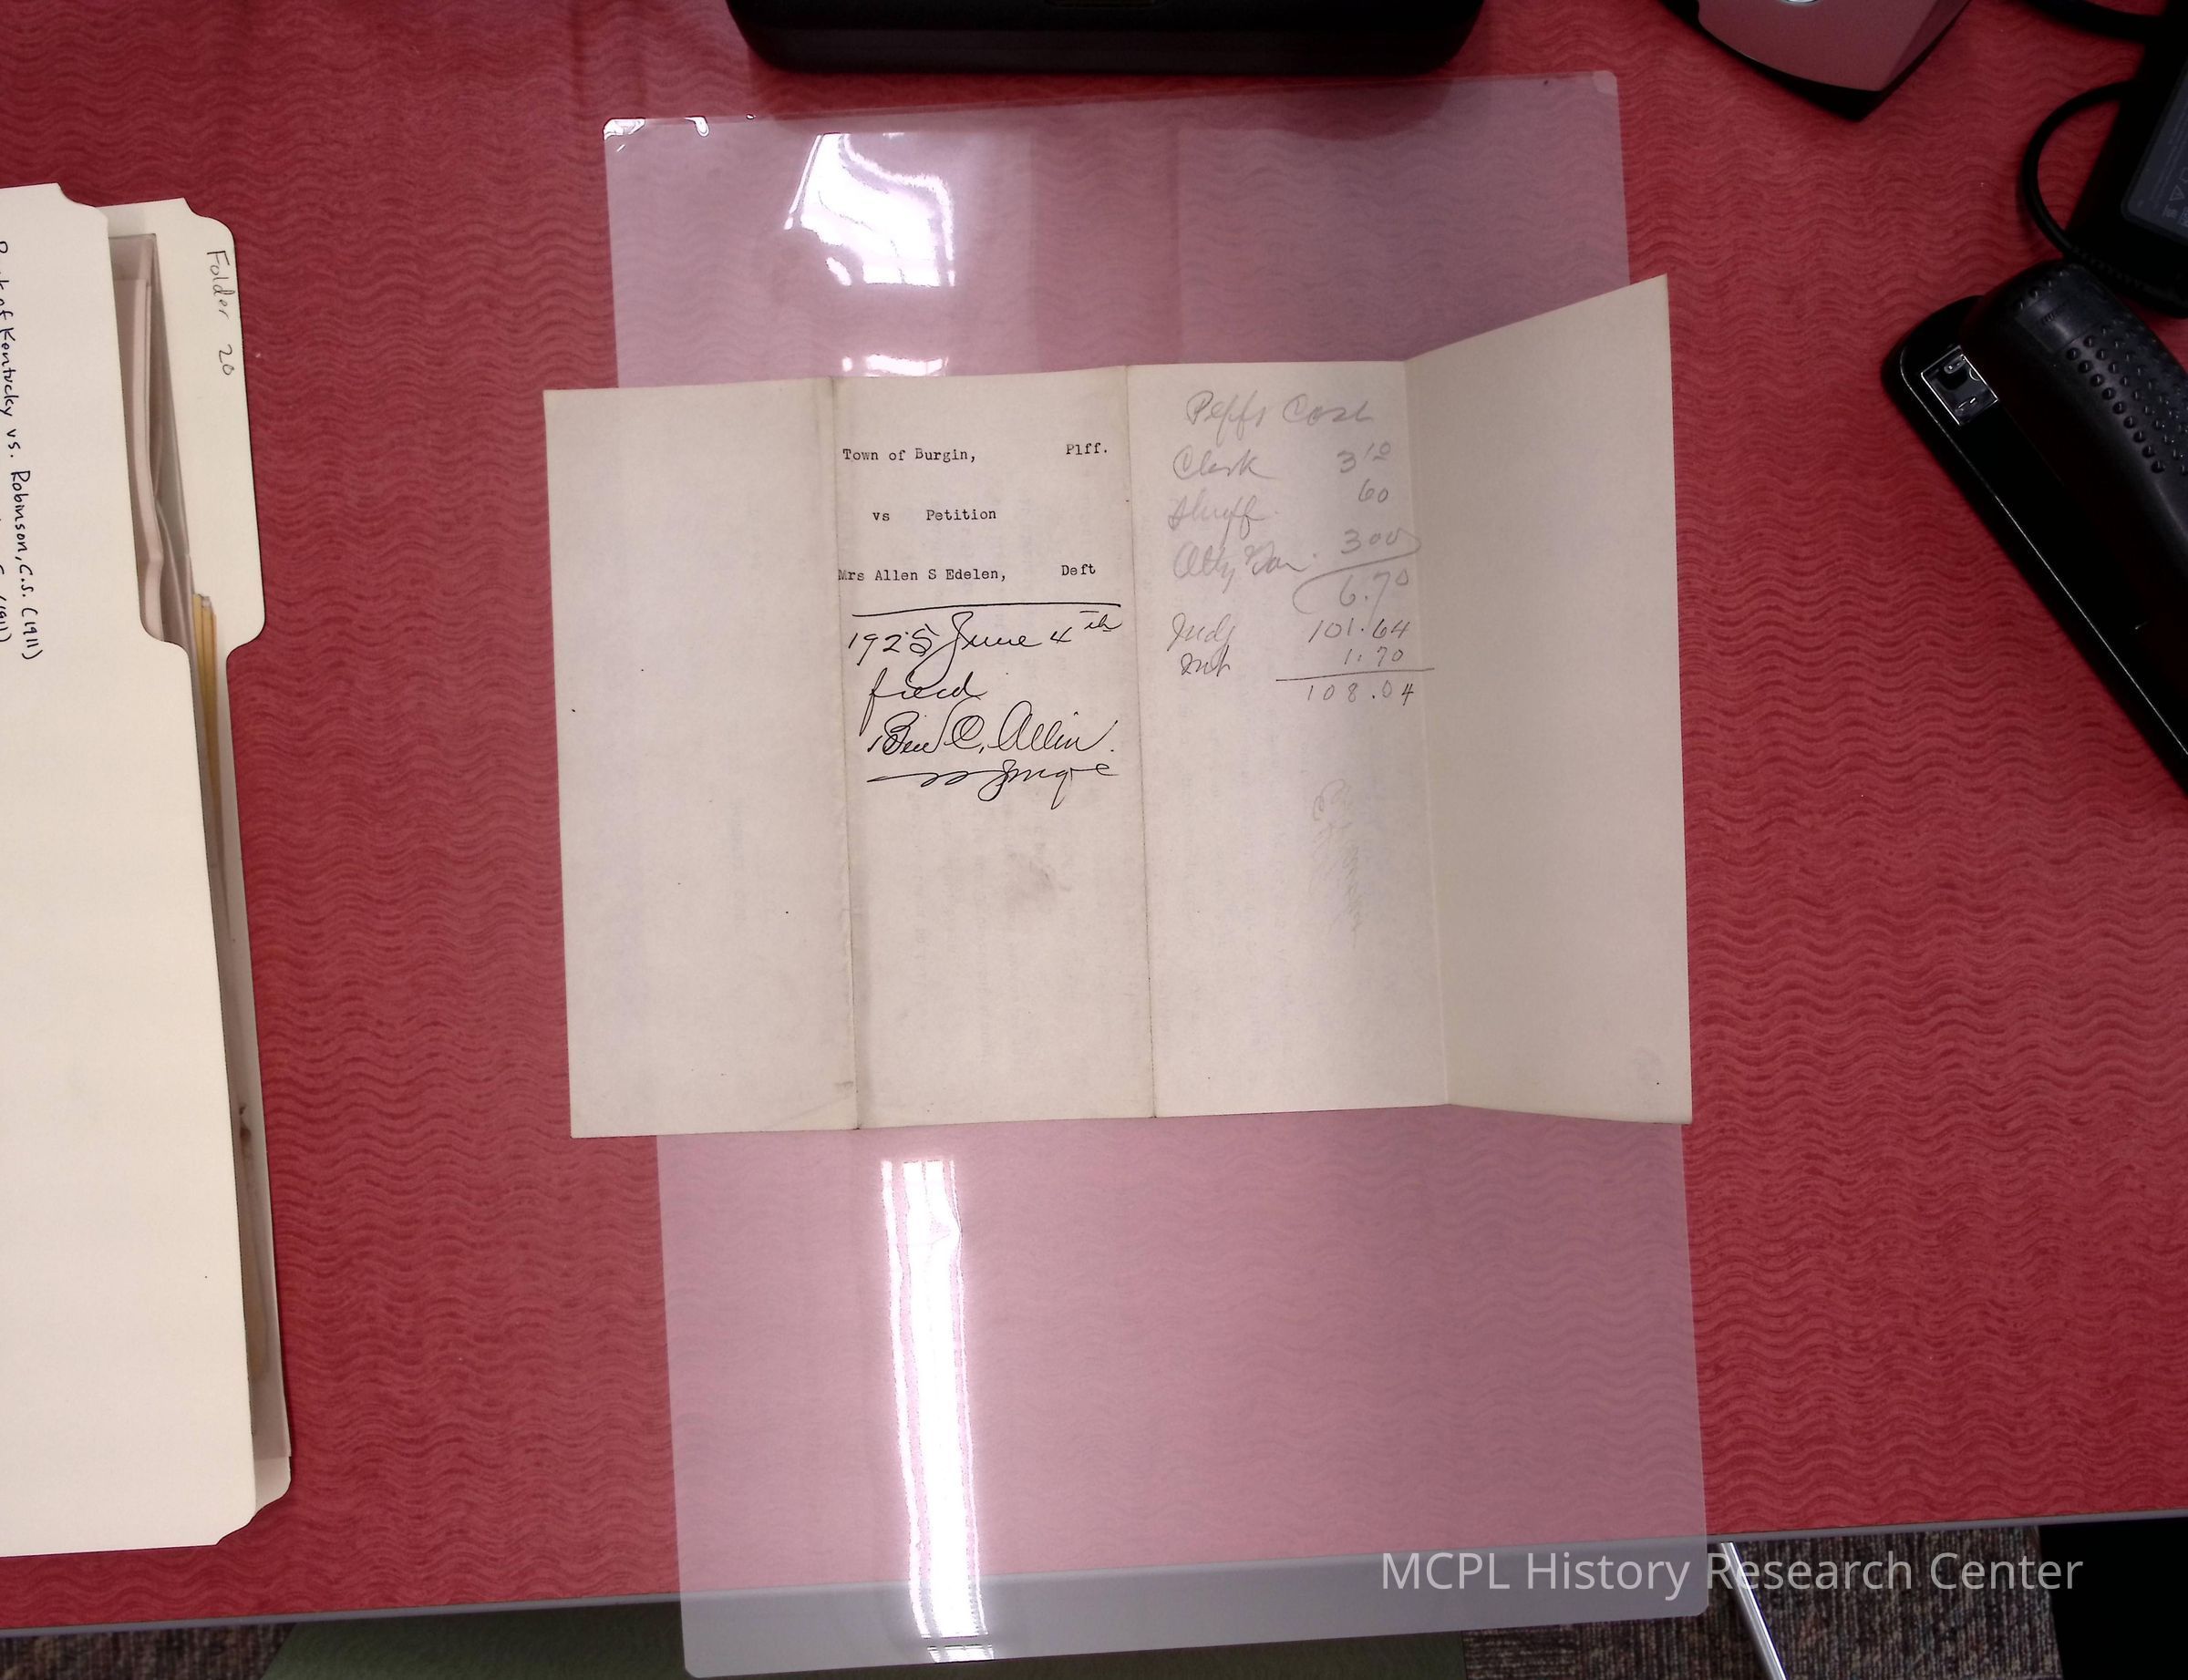 Folder 20
of Kentucky vs. Robinson, C.S. (1911)
Town of Burgin, Plff.
vs Petition
Mrs Allen S Edelen, Deft
1925 June 4th
filed
Ben C. Allin.
Judge
Plffs Cost
Clerk 3 10
Sheriff 60
Atty 3 00
6.70
Judg 101.64
Int 1.70
108.04
MCPL History Research Center